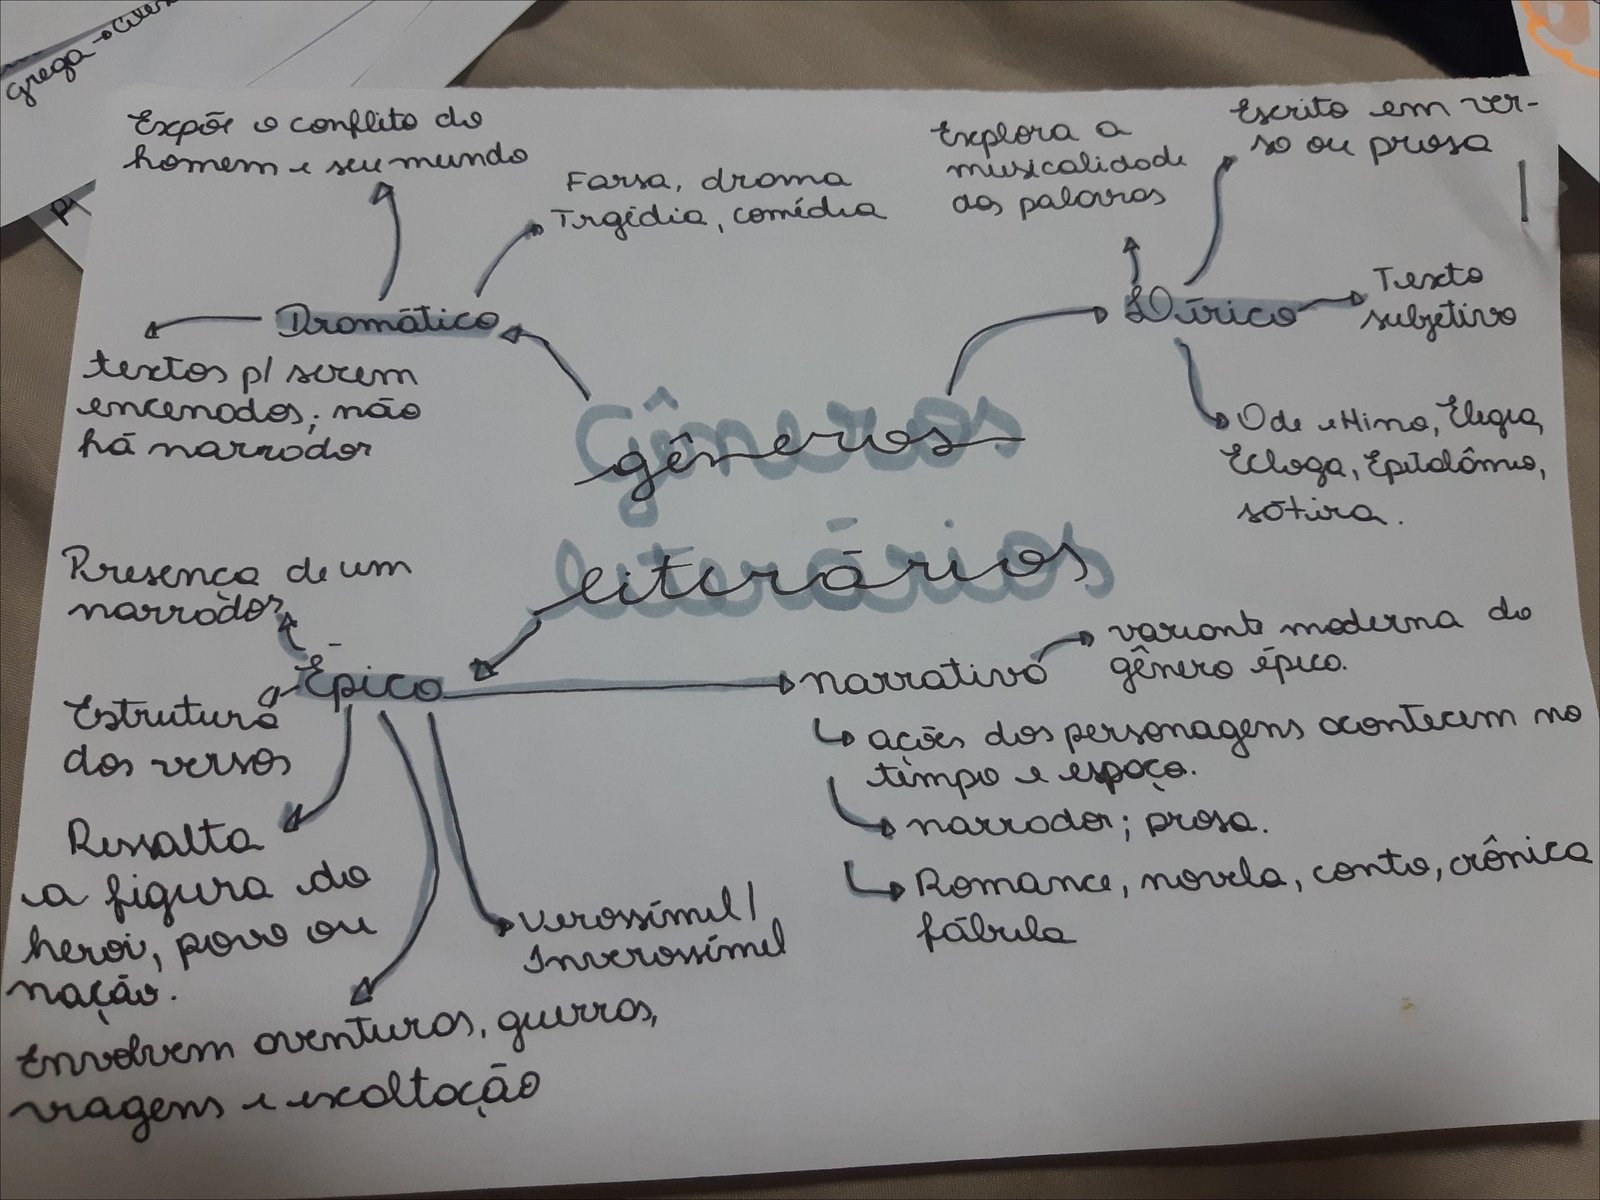 grega →
Expõe o conflito do
homem e seu mundo
Farsa, drama
Trgédia, comédia
Dramático
textos p/ serem
encenados; não
há narrador
Explora a
musicalidade
das palavras
Escrito em ver-
so ou prosa
Lírico
Texto
subjetivo
Ode e Hino, Elegia,
Écloga, Epitalâmio,
sátira.
gêneros
literários
Presença de um
narrador
Épico
Estrutura
dos versos
Ressalta
a figura do
heroi, povo ou
nação.
Envolvem aventuras, guerras,
viagens e exaltação
Verossímel/
Inverossímel
narrativo
variante moderna do
gênero épico.
ações dos personagens acontecem no
tempo e espaço.
narrador; prosa.
Romance, novela, conto, crônica
fábula